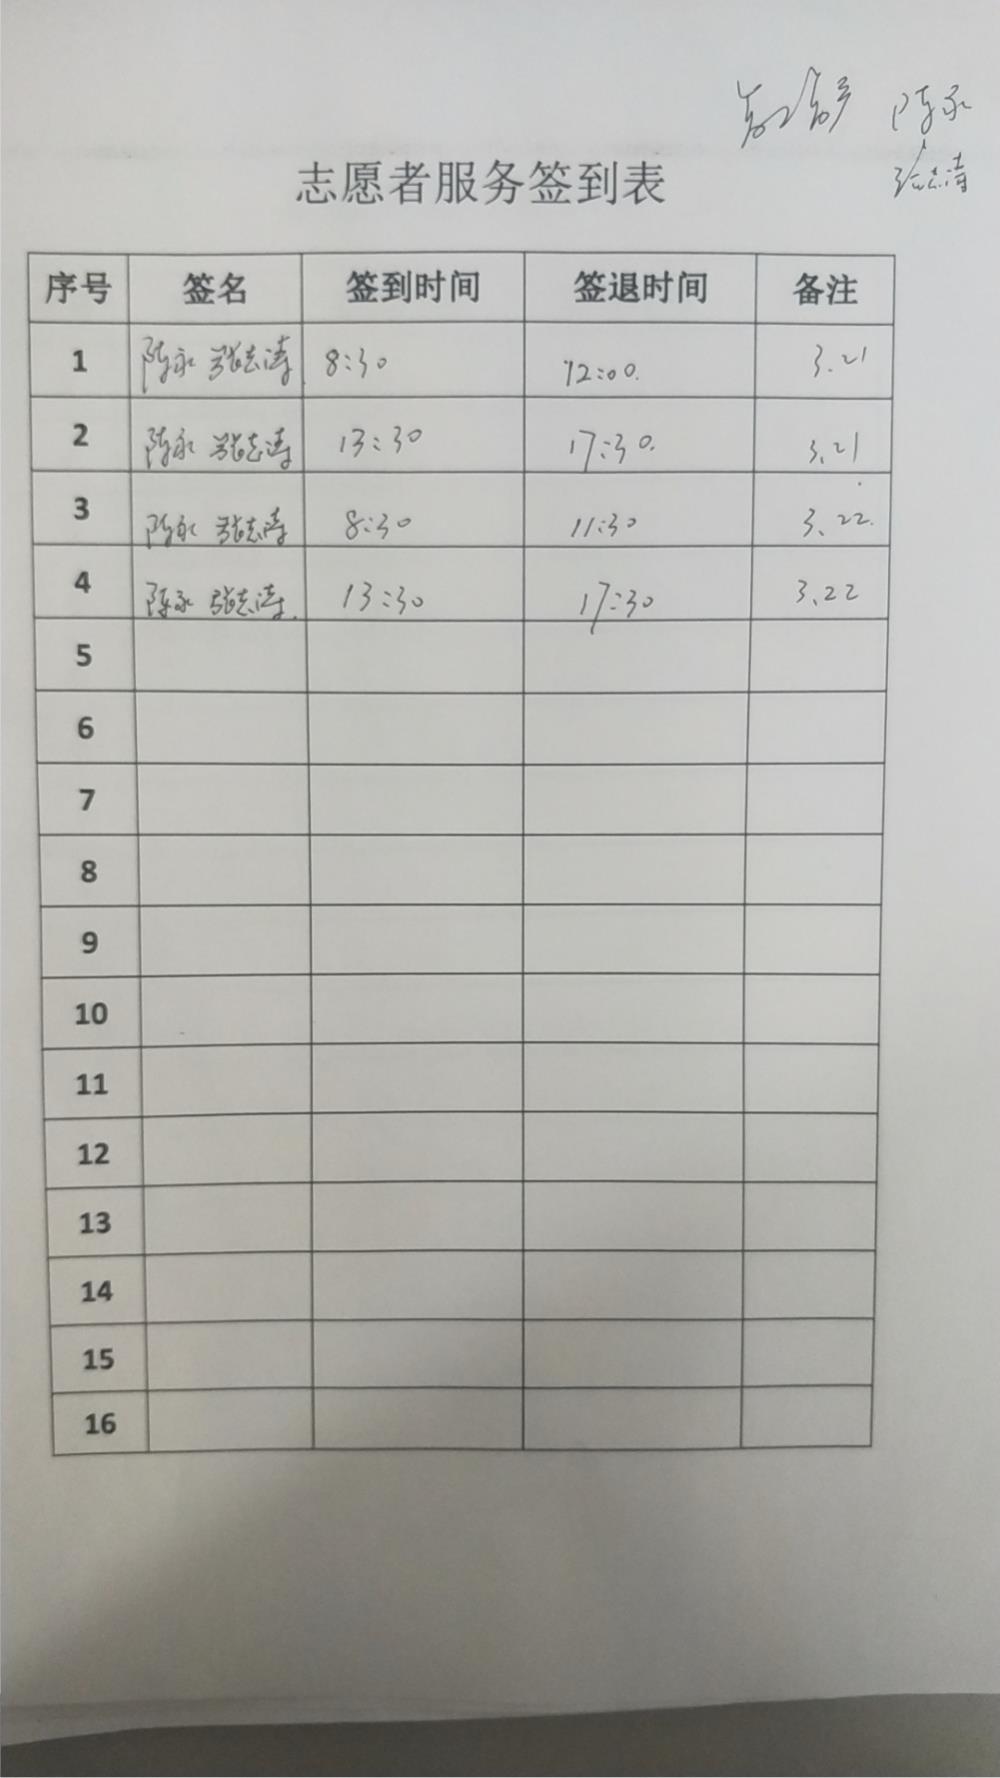 陈永
张志涛
志愿者服务签到表
序号 签名 签到时间 签退时间 备注
1 陈永 张志涛 8:30 12:00. 3.21
2 陈永 张志涛 13:30 17:30. 3.21
3 陈永 张志涛 8:30 11:30 3.22.
4 陈永 张志涛. 13:30 17:30 3.22
5
6
7
8
9
10
11
12
13
14
15
16